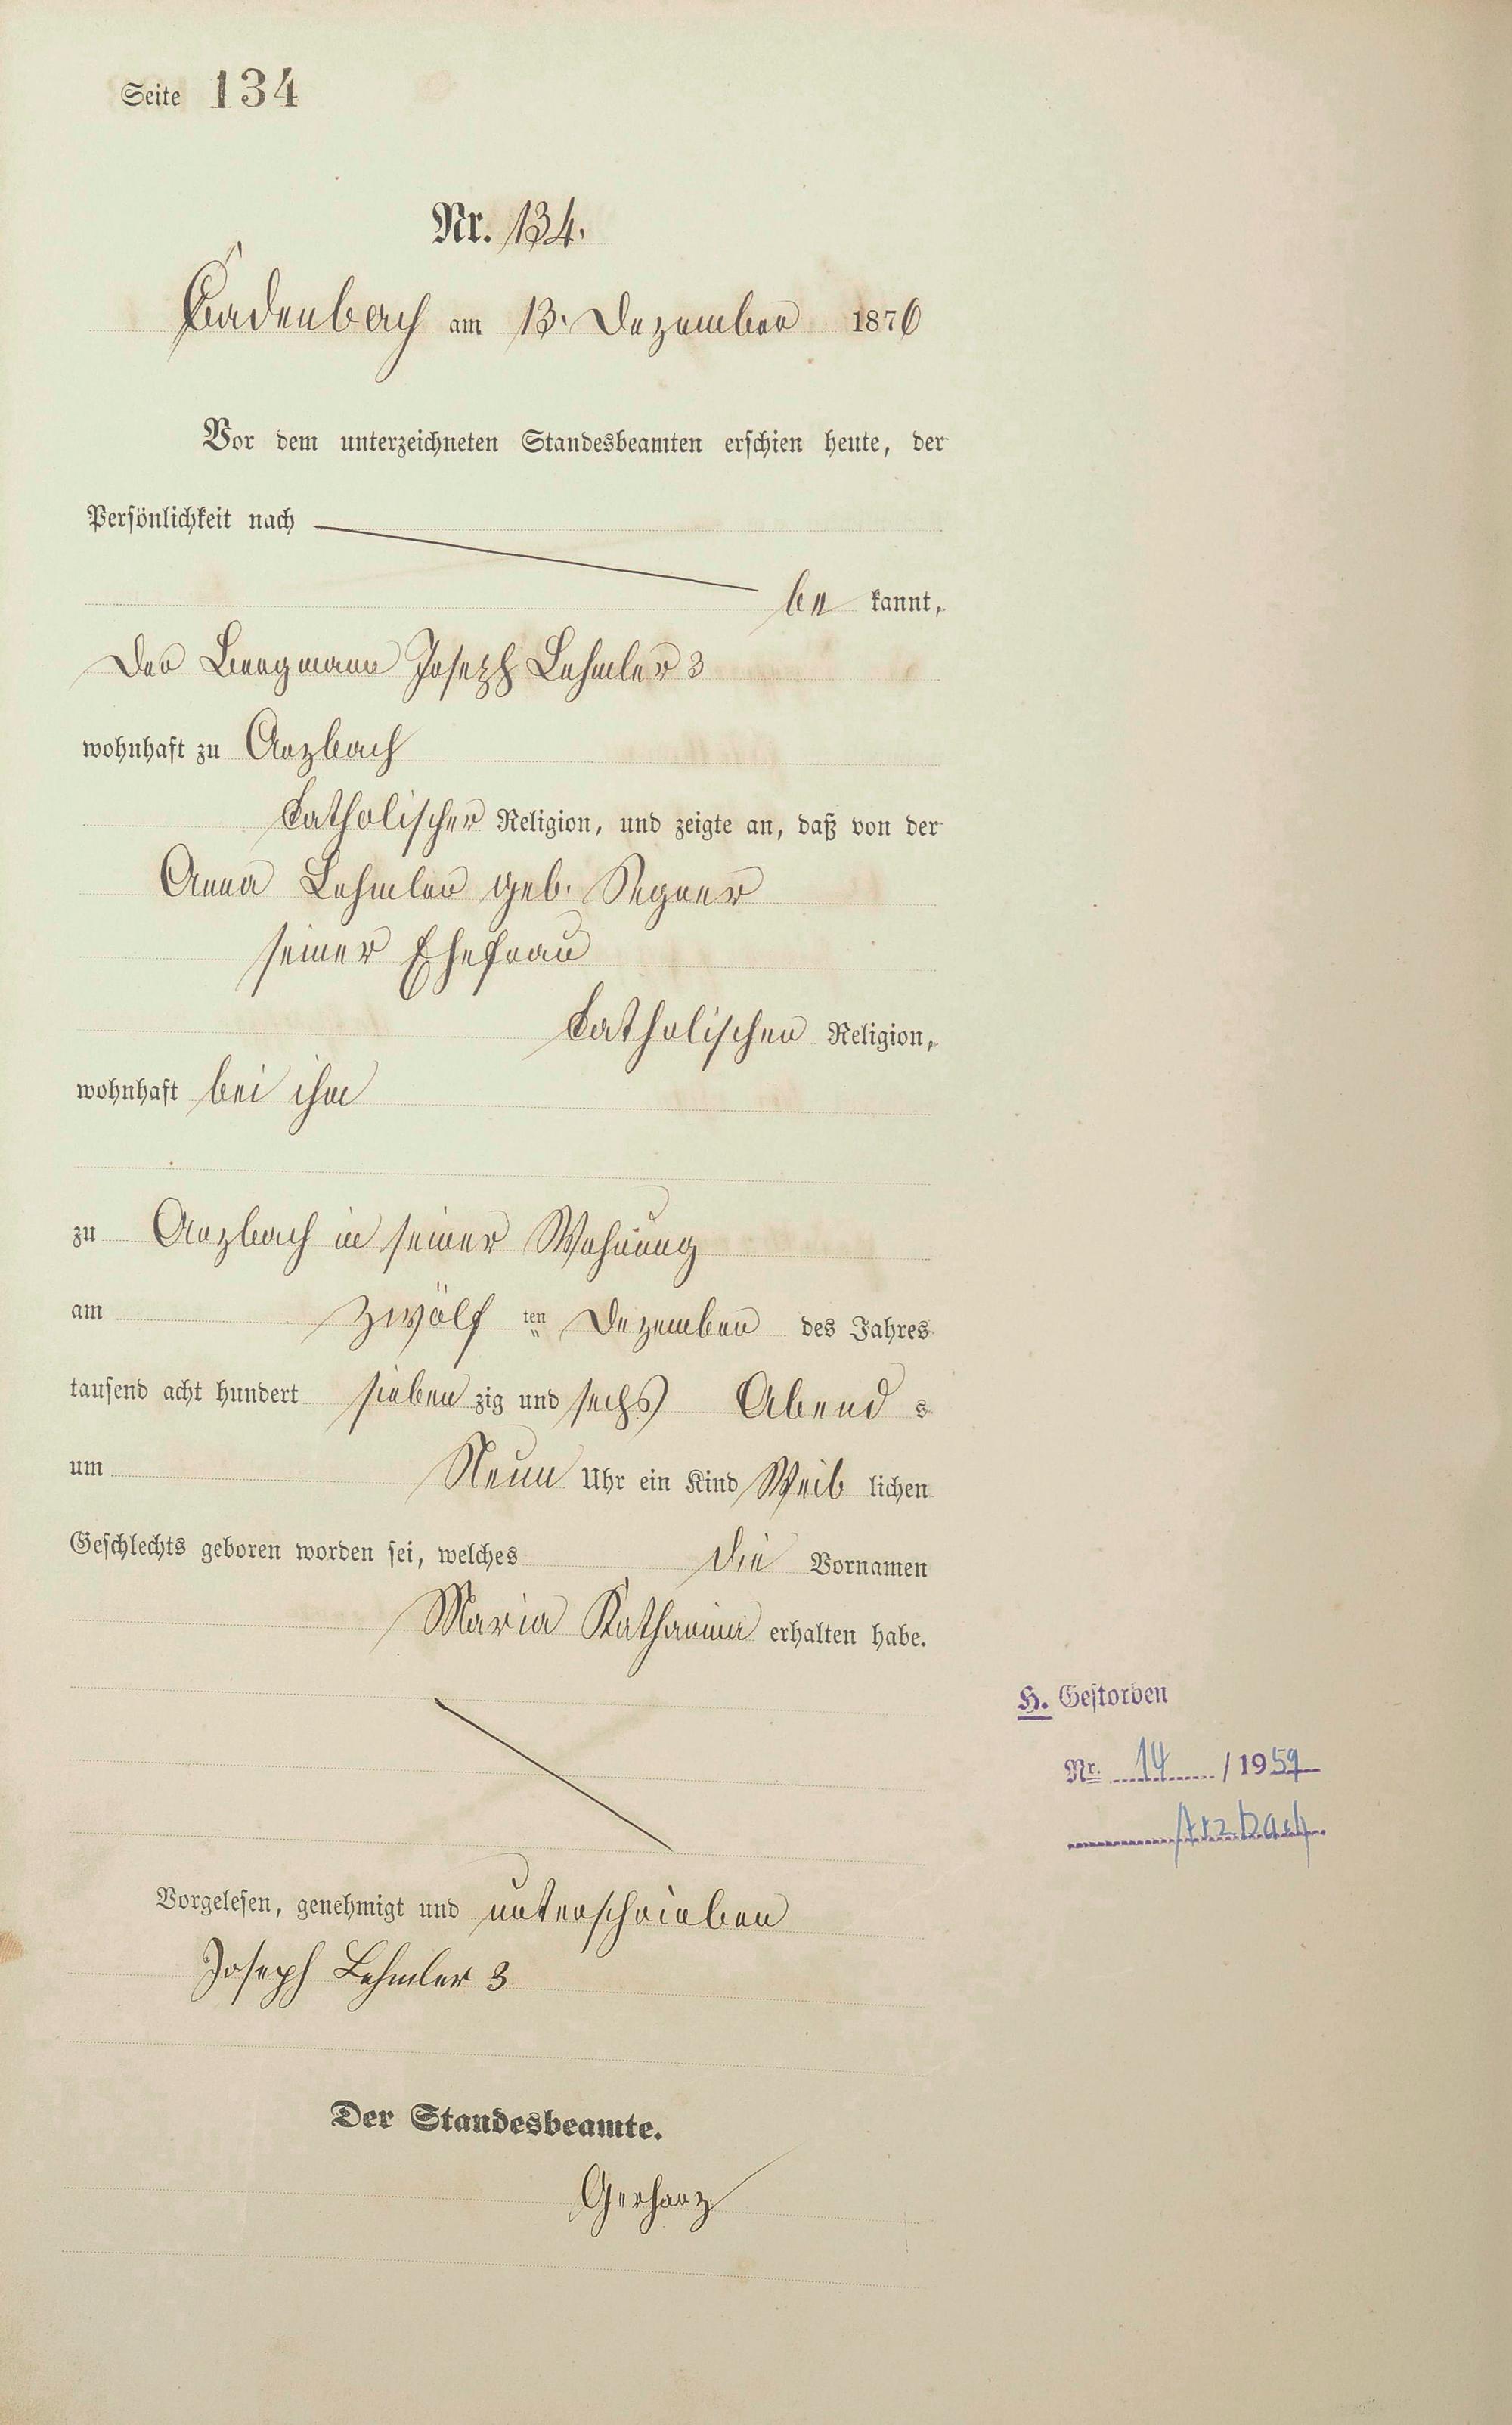 Seite 134
Nr. 134.
Cadenbach am 13. Dezember 1876
Vor dem unterzeichneten Standesbeamten erschien heute, der
Persönlichkeit nach
be kannt,
der Bergmann Joseph Lehmler 3
wohnhaft zu Arzbach
katholischer Religion, und zeigte an, daß von der
Anna Lehmler geb. Segner
seiner Ehefrau
katholischer Religion,
wohnhaft bei ihm
zu Arzbach in seiner Wohnung
am zwölf ten Dezember des Jahres
tausend acht hundert sieben zig und sechs Abend s
um Neun Uhr ein Kind Weib lichen
Geschlechts geboren worden sei, welches die Vornamen
Maria Katharina erhalten habe.
H. Gestorben
Nr. 14 / 1959
Arzbach
Vorgelesen, genehmigt und unterschrieben
Joseph Lehmler 3
Der Standesbeamte.
Gerharz